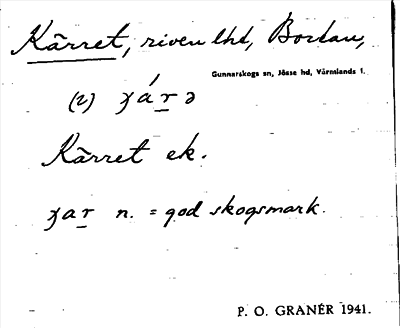 Kärret, riven lhd, Bordau,
Gunnarskogs sn, Jösse hd, Värmlands l.
(2) ɟárə
Kärret ek.
ɟar n. = god skogsmark.
P. O. GRANÉR 1941.